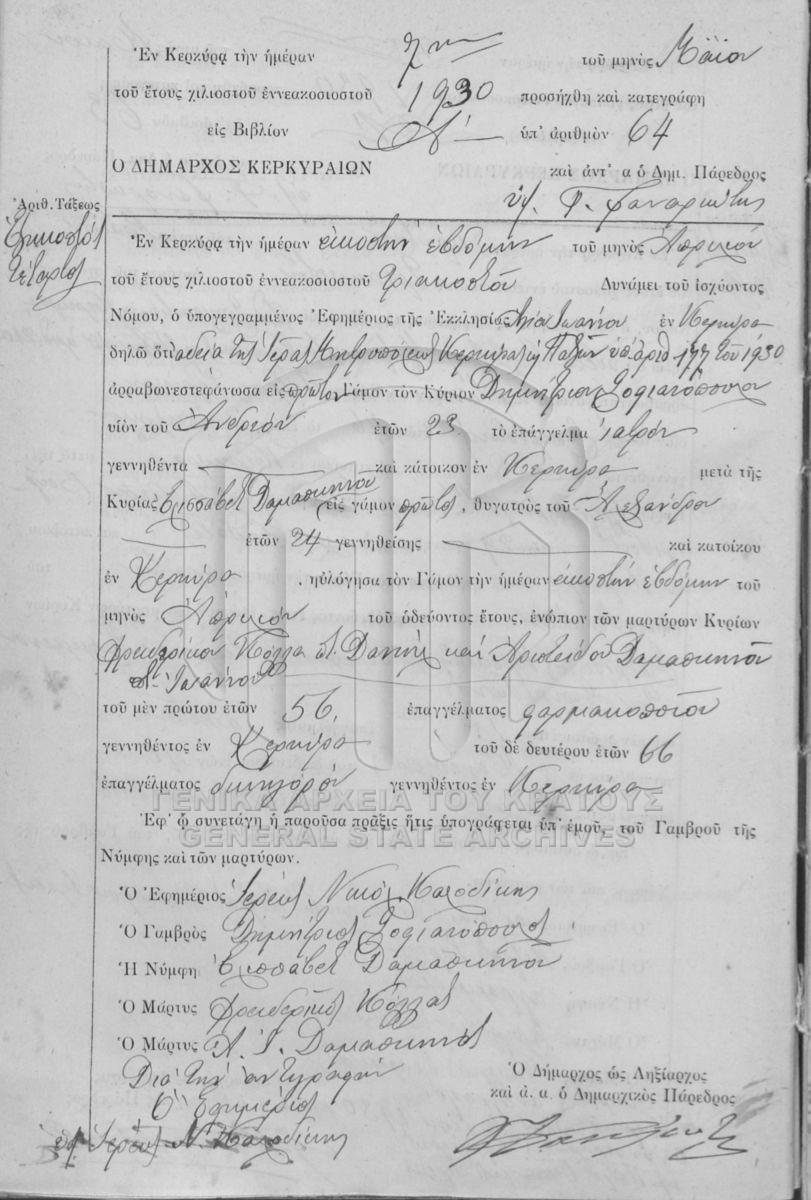 Ἐν Κερκύρᾳ τὴν ἡμέραν 7ην τοῦ μηνὸς Μαΐου
τοῦ ἔτους χιλιοστοῦ ἐννεακοσιοστοῦ 1930 προσήχθη καὶ κατεγράφη
εἰς Βιβλίον Α' ὑπ' ἀριθμὸν 64
Ο ΔΗΜΑΡΧΟΣ ΚΕΡΚΥΡΑΙΩΝ καὶ ἀντ' α ὁ Δημ. Πάρεδρος
Ἀριθ. Τάξεως
Εἰκοστὸς
τέταρτος
Ἐν Κερκύρᾳ τὴν ἡμέραν εἰκοστὴν ἑβδόμην τοῦ μηνὸς Ἀπριλίου
τοῦ ἔτους χιλιοστοῦ ἐννεακοσιοστοῦ τριακοστοῦ Δυνάμει τοῦ ἰσχύοντος
Νόμου, ὁ ὑπογεγραμμένος Ἐφημέριος τῆς Ἐκκλησίας Ἁγίου Ἰωάννου ἐν Κερκύρᾳ
δηλῶ ὅτι ἀδείᾳ τῆς Ἱερᾶς Μητροπόλεως Κερκύρας καὶ Παξῶν ὑπ' ἀριθ 177 τοῦ 1930
ἀρραβωνεστεφάνωσα εἰς πρῶτον Γάμον τὸν Κύριον Δημήτριον Σοφιανόπουλον
υἱὸν τοῦ Ἀνδρέου ἐτῶν 23 τὸ ἐπάγγελμα ἰατρόν
γεννηθέντα καὶ κάτοικον ἐν Κερκύρᾳ μετὰ τῆς
Κυρίας Ἐλισσάβετ Δαμασκηνοῦ εἰς γάμον πρῶτον, θυγατρὸς τοῦ Ἀλεξάνδρου
ἐτῶν 24 γεννηθείσης καὶ κατοίκου
ἐν Κερκύρᾳ, ηὐλόγησα τὸν Γάμον τὴν ἡμέραν εἰκοστὴν ἑβδόμην τοῦ
μηνὸς Ἀπριλίου τοῦ ὁδεύοντος ἔτους, ἐνώπιον τῶν μαρτύρων Κυρίων
Φρειδερίκου Κόλλα τ. Δανιὴλ καὶ Ἀριστείδου Δαμασκηνοῦ
τ. Ἰωάννου
τοῦ μὲν πρώτου ἐτῶν 56, ἐπαγγέλματος φαρμακοποιοῦ
γεννηθέντος ἐν Κερκύρᾳ τοῦ δὲ δευτέρου ἐτῶν 66
ἐπαγγέλματος δικηγόρου γεννηθέντος ἐν Κερκύρᾳ
ΓΕΝΙΚΑ ΑΡΧΕΙΑ ΤΟΥ ΚΡΑΤΟΥΣ
Ἐφ' ᾧ συνετάγη ἡ παροῦσα πρᾶξις ἥτις ὑπογράφεται ὑπ' ἐμοῦ, τοῦ Γαμβροῦ τῆς
GENERAL STATE ARCHIVES
Νύμφης καὶ τῶν μαρτύρων.
Ὁ Ἐφημέριος Ἱερεὺς Νικόλ. Καλοδίκης
Ὁ Γαμβρὸς Δημήτριος Σοφιανόπουλος
Ἡ Νύμφη Ἐλισσάβετ Δαμασκηνοῦ
Ὁ Μάρτυς Φρειδερῖκος Κόλλας
Ὁ Μάρτυς Α. Ι. Δαμασκηνός
Διὰ τὴν ἀντιγραφὴν
Ὁ Ἐφημέριος
Ἱερεὺς Ν. Καλοδίκης
Ὁ Δήμαρχος ὡς Ληξίαρχος
καὶ ἀ. α. ὁ Δημαρχικὸς Πάρεδρος